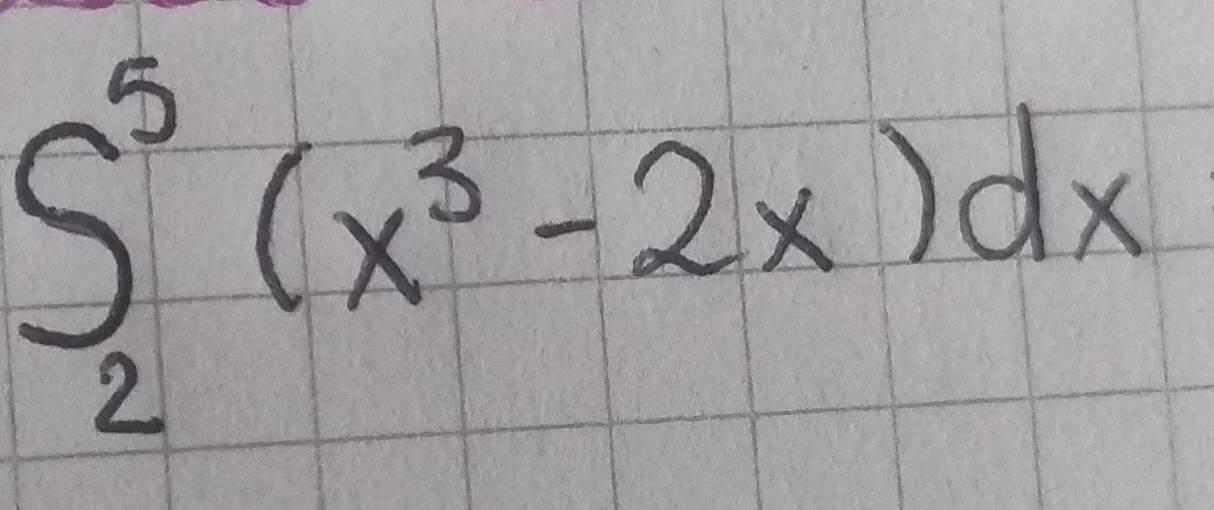 ∫₂⁵ (x³ - 2x) dx